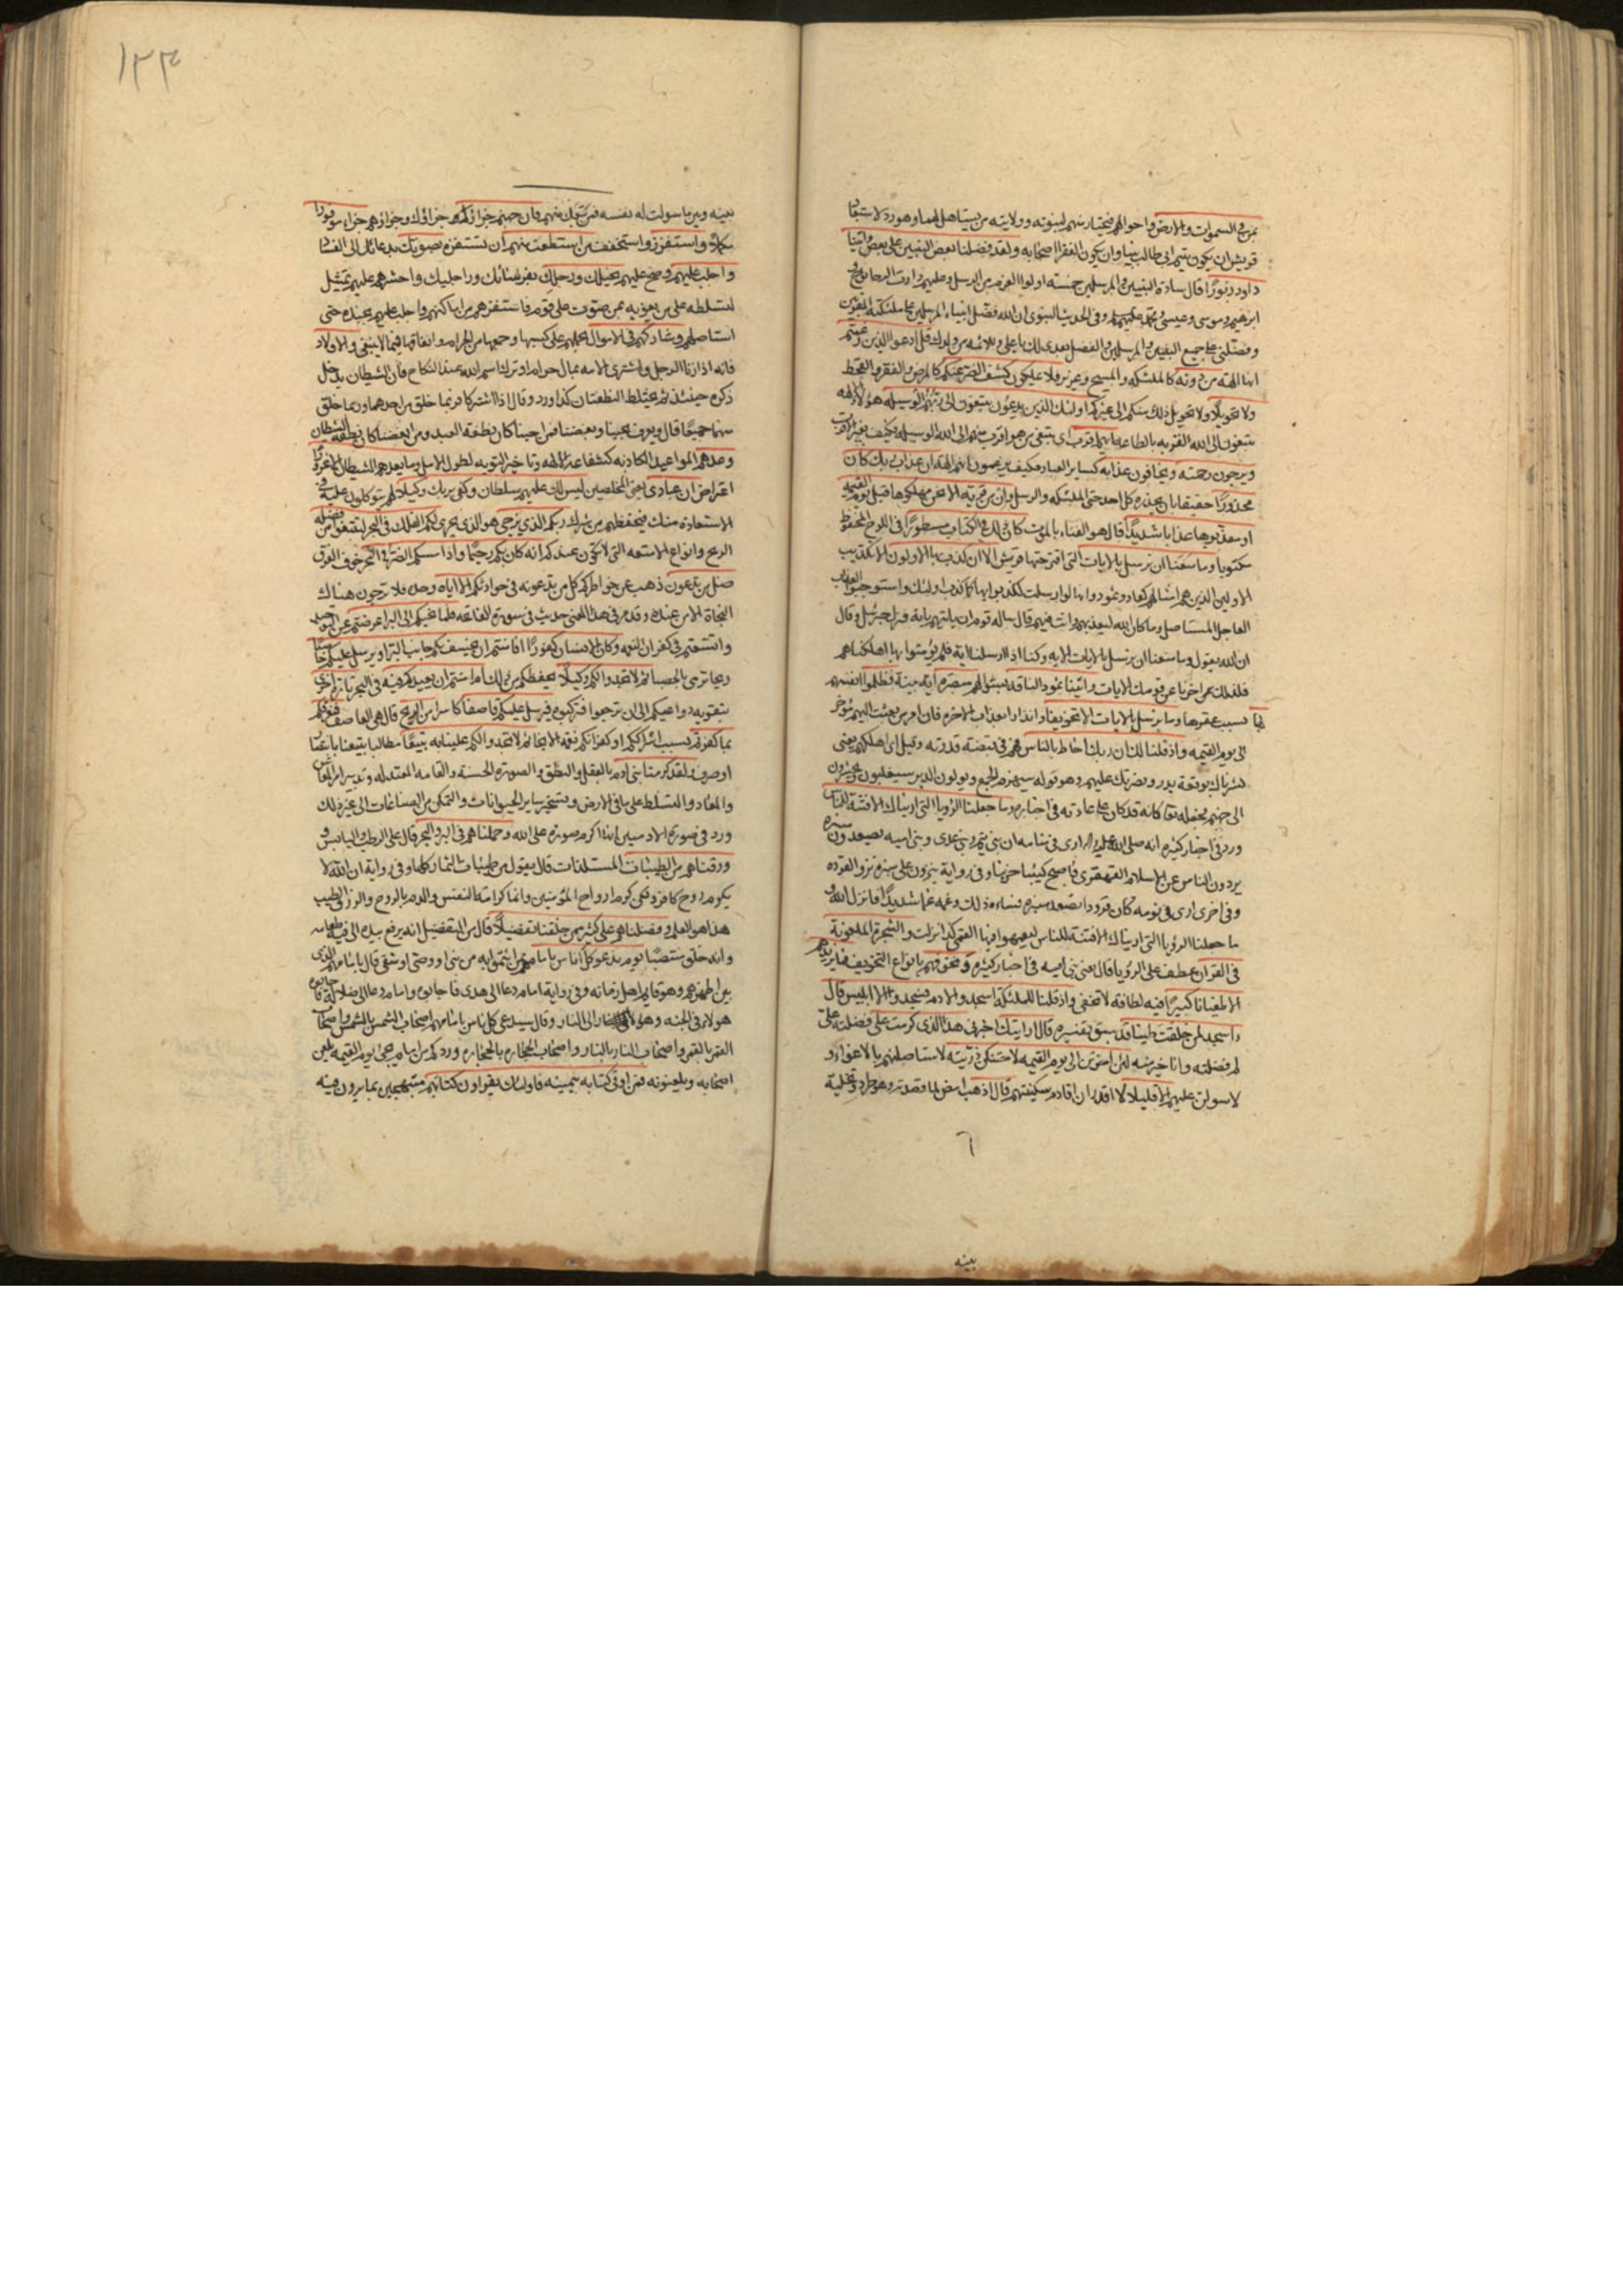 بمن في السموات والارض واحوالهم فيختار منهم لنبوته وولايته من يستاهل لهما وهو رد لاستبعاد
قريش ان يكون يتيم ابي طالب نبيا وان يكون الفقرا اصحابه ولقد فضلنا بعض النبيين على بعض واتينا
داود زبورا قال سادة النبيين والمرسلين خمسة اولوا العزم من الرسل وعليهم دارت الرحا نوح و
ابرهيم وموسى وعيسى ومحمد عليهم السلام وفي الحديث النبوي ان الله فضل انبياءه المرسلين على ملئكته المقربين
وفضلني على جميع النبيين والمرسلين والفضل بعدي لك يا علي وللائمة من ولدك قل ادعوا الذين زعمتم
انها الهة من دونه كالملئكه والمسيح وعزير فلا يملكون كشف الضر عنكم كالمرض والفقر والقحط
ولا تحويلا ولا تحويل ذلك منكم الى غيركم اولئك الذين يدعون يبتغون الى ربهم الوسيله هؤلاء الالهه
يبتغون الى الله القربه بالطاعه ايهم اقرب اي يبتغي من هو اقرب منهم الى الله الوسيله فكيف بغير الاقرب
ويرجون رحمته ويخافون عذابه كساير العباد فكيف يزعمون انهم الهة ان عذاب ربك كان
محذورا حقيقا بان يحذره كل احد حتى الملئكه والرسل وان من قرية الا نحن مهلكوها قبل يوم القيمه
او معذبوها عذابا شديدا قال هو الفناء بالموت كان ذلك في الكتاب مسطورا في اللوح المحفوظ
مكتوبا وما منعنا ان نرسل بالايات التي اقترحتها قريش الا ان كذب بها الاولون الا تكذيب
الاولين الذين هم امثالهم كعاد وثمود وانها لو ارسلت لكذبوا بها كما كذب اولئك واستوجبوا العذاب
العاجل المستاصل وما كان الله ليعذبهم وانت فيهم قال ساله قومه ان ياتيهم باية فنزل جبرئيل وقال
ان الله يقول وما منعنا ان نرسل بالايات الايه وكنا اذا ارسلنا اية فلم يؤمنوا بها اهلكناهم
فلذلك اخرنا عن قومك الايات واتينا ثمود الناقة بسؤالهم مبصرة اية بينة فظلموا انفسهم
بها بسبب عقرها وما نرسل بالايات الا تخويفا وانذارا بعذاب الاخره فان امر من بعثت اليهم مؤخر
الى يوم القيمه واذ قلنا لك ان ربك احاط بالناس فهم في قبضة قدرته وقيل اي اهلكهم يعني
بشرناك بوقعة بدر وبنصرتك عليهم وهو قوله سيهزم الجمع ويولون الدبر سيغلبون ويحشرون
الى جهنم فجعله تعالى كانه قد كان على عادته في اخباره وما جعلنا الرؤيا التي اريناك الا فتنة للناس
ورد في اخبار كثيره انه صلى الله عليه واله راى في منامه ان بني تيم وبني عدي وبني اميه يصعدون منبره
يردون الناس عن الاسلام القهقرى فاصبح كئيبا حزينا وفي رواية ينزون على منبره نزو القرده
وفي اخرى راى في نومه كان قرودا تصعد منبره فساءه ذلك وغمه غما شديدا فانزل الله و
ما جعلنا الرؤيا التي اريناك الا فتنة للناس ليعمهوا فيها العمى كذا نزلت والشجرة الملعونة
في القرآن عطف على الرؤيا قال يعني بني اميه في اخبار كثيره ونخوفهم بانواع التخويف فما يزيدهم
الا طغيانا كبيرا فيه لطافة لا تخفى واذ قلنا للملئكة اسجدوا لادم فسجدوا الا ابليس قال
ءاسجد لمن خلقت طينا قد سبق تفسيره قال ارايتك اخبرني هذا الذي كرمت علي فضلته علي
لم فضلته وانا خير منه لئن اخرتن الى يوم القيمه لاحتنكن ذريته لاستاصلنهم بالاغواء و
لاستولين عليهم الا قليلا لا اقدر ان اقاوم سكينتهم قال اذهب امض لما قصدته وهو طرد وتخلية
بينه
١٣٣
بينه وبين ما سولت له نفسه فمن تبعك منهم فان جهنم جزاؤكم جزاؤك وجزاؤهم جزاء موفورا
مكملا واستفزز واستخفف من استطعت منهم ان تستفزه بصوتك بدعائك الى الفساد
واجلب عليهم وصح عليهم بخيلك ورجلك بفرسانك وراجليك واحشرهم عليهم تمثيل
لتسلطه على من يغويه بمن صوت على قوم فاستفزهم من اماكنهم واجلب عليهم بجنده حتى
استاصلهم وشاركهم في الاموال بحملهم على كسبها وجمعها من الحرام وانفاقها فيما لا ينبغي والاولاد
فانه اذا زنا الرجل واشترى الامه بمال حرام او ترك اسم الله عند النكاح فان الشيطان يدخل
ذكره حينئذ ثم يختلط النطفتان كذا ورد وقال اذا اشتركا فربما خلق من احدهما وربما خلق
منهما جميعا قال ويعرف بحبنا وبغضنا فمن احبنا كان نطفة العبد ومن ابغضنا كان نطفة الشيطان
وعدهم المواعيد الكاذبه كشفاعة الالهة وتاخير التوبه لطول الامل وما يعدهم الشيطان الا غرورا
اعتراض ان عبادي يعني المخلصين ليس لك عليهم سلطان وكفى بربك وكيلا لهم يتوكلون عليه في
الاستعاذة منك فيحفظهم من شرك ربكم الذي يزجي هو الذي يجري لكم الفلك في البحر لتبتغوا من فضله
الربح وانواع الامتعه التي لا تكون عندكم انه كان بكم رحيما واذا مسكم الضر في البحر خوف الغرق
ضل من تدعون ذهب عن خواطركم كل من تدعونه في حوادثكم الا اياه وحده فلا ترجون هناك
النجاة الا من عنده وقد مر في هذا المعنى حديث في سورة الفاتحه فلما نجيكم الى البر اعرضتم عن التوحيد
واتسعتم في كفران النعمه وكان الانسان كفورا افامنتم ان يخسف بكم جانب البر او يرسل عليكم حاصبا
ريحا ترمى بالحصبا ثم لا تجدوا لكم وكيلا يحفظكم من ذلك ام امنتم ان يعيدكم فيه في البحر تارة اخرى
بتقوية دواعيكم الى ان ترجعوا فتركبوه فيرسل عليكم قاصفا كاسرا من الريح قال هي العاصف فيغرقكم
بما كفرتم بسبب اشراككم او كفرانكم نعمة الانجاء ثم لا تجدوا لكم علينا به تبيعا مطالبا يتبعنا بانتصار
او صرف ولقد كرمنا بني ادم بالعقل والنطق والصورة الحسنة والقامة المعتدله وتدبير امر المعاش
والمعاد والتسلط على ما في الارض وتسخير ساير الحيوانات والتمكن من الصناعات الى غير ذلك
ورد في صورة الادميين انها اكرم صورة على الله وحملناهم في البر والبحر قال على الرطب واليابس و
ورزقناهم من الطيبات المستلذات قال يقول من طيبات الثمار كلها وفي رواية ان الله لا
يكرم روح كافر ولكن كرم ارواح المؤمنين وانما كرامة النفس والدم بالروح والرزق الطيب
هذا هو العلم وفضلناهم على كثير ممن خلقنا تفضيلا قال من التفضيل انه يرفع بيده الى فيه طعامه
وانه خلق منتصبا يوم ندعو كل اناس بامامهم بمن ائتموا به من نبي او وصي او شقي قال بامامهم الذي
بين اظهرهم وهو قايم اهل زمانه وفي رواية امام دعا الى هدى فاجابوه وامام دعا الى ضلالة فاجابوه
هؤلاء في الجنه وهؤلاء الى النار وقال سيدعى كل اناس بامامهم اصحاب الشمس بالشمس واصحاب
القمر بالقمر واصحاب النار بالنار واصحاب الحجاره بالحجاره وورد كم من امام يجيء يوم القيمه يلعن
اصحابه ويلعنونه فمن اوتي كتابه بيمينه فاولئك يقراون كتابهم مبتهجين بما يرون فيه